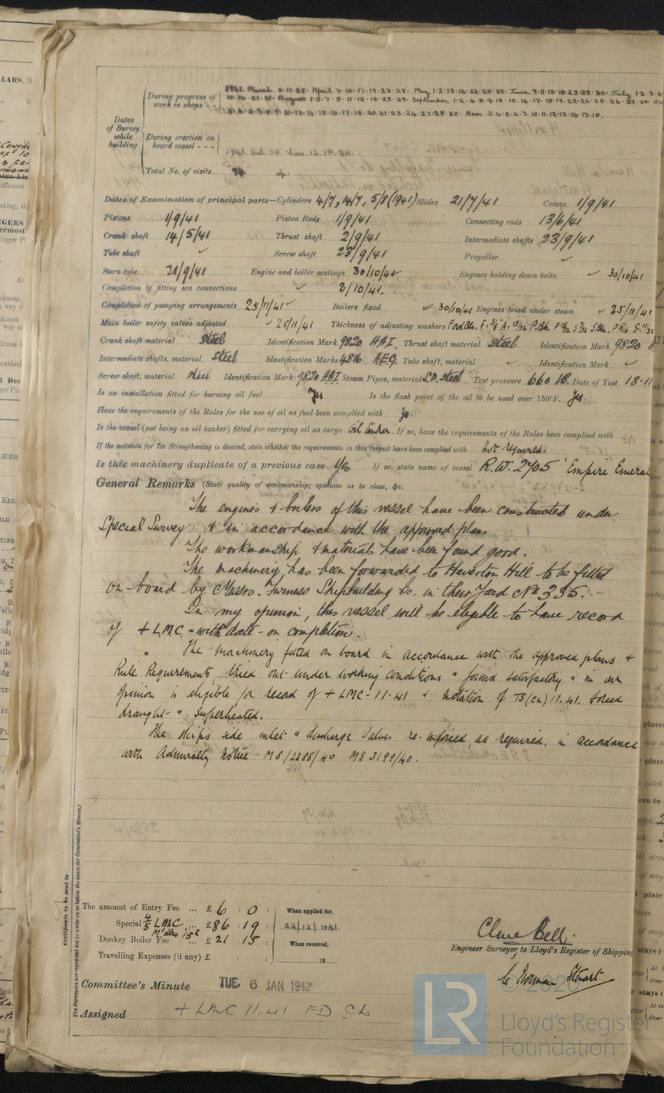 Dates of Survey while building
During progress of work in shops - -
1941. March
During erection on board vessel - - -
Total No. of visits
Dates of Examination of principal parts—Cylinders 4/7, 14/7, 5/8 (1941) Slides 21/7/41 Covers 1/9/41
Pistons 1/9/41 Piston Rods 1/9/41 Connecting rods 13/6/41
Crank shaft 14/5/41 Thrust shaft 2/9/41 Intermediate shafts 23/9/41
Tube shaft ✓ Screw shaft 23/9/41 Propeller ✓
Stern tube 21/9/41 Engine and boiler seatings 30/10/41 Engines holding down bolts ✓ 30/10/41
Completion by fitting sea connections ✓ 2/10/41.
Completion of pumping arrangements 25/11/41 Boilers fixed ✓ 30/10/41 Engines tried under steam ✓ 25/11/41
Main boiler safety valves adjusted ✓ 25/11/41 Thickness of adjusting washers
Crank shaft material Steel Identification Mark 9820 HAI Thrust shaft material Steel Identification Mark 9820
Intermediate shafts, material Steel Identification Marks 4816 AEG Tube shaft, material ✓ Identification Mark ✓
Screw shaft, material Steel Identification Mark 9820 HAI Steam Pipes, material S.D. Steel Test pressure 660 lb. Date of Test 18.11
Is an installation fitted for burning oil fuel Yes Is the flash point of the oil to be used over 150°F. Yes.
Have the requirements of the Rules for the use of oil as fuel been complied with Yes
Is the vessel (not being an oil tanker) fitted for carrying oil as cargo Oil tanker. If so, have the requirements of the Rules been complied with
If the notation for Ice Strengthening is desired, state whether the requirements in this respect have been complied with Not required.
Is this machinery duplicate of a previous case Yes If so, state name of vessel R.W. 2705 "Empire Emeral
General Remarks (State quality of workmanship, opinions as to class, &c.
The engines & boilers of this vessel have been constructed under
Special Survey & in accordance with the approved plans
The workmanship & materials have been found good.
The machinery has been forwarded to Haverton Hill to be fitted
on board by Messrs. Furness Shipbuilding Co. in their Yard No. 335.
In my opinion, this vessel will be eligible to have record
of + LMC - with date - on completion.
The machinery fitted on board in accordance with the approved plans &
Rule Requirements, tried out under working conditions & found satisfactory & in our
opinion is eligible for record of + LMC - 11.41 & notation of TS (CL) 11.41. Forced
draught & Superheated.
The ships side inlet & discharge valves re-inforced as required, in accordance
with Admiralty notice - MS/2285/40 MS 3199/40.
Certificate to be sent to
(The Surveyors are requested not to write on or below the space for Committee's Minute.)
The amount of Entry Fee ... £ 6 : 0 : When applied for,
Special 4/5 LMC ... £ 86 : 19 : 22/12/1941
Donkey Boiler Fee ... £ 21 : 15 : When received,
Travelling Expenses (if any) £ : : 19
Clive Bell.
Engineer Surveyor to Lloyd's Register of Shipping
C. Norman Stuart
Committee's Minute TUE 6 JAN 1942
Assigned + LMC 11.41 FD CL
© 2020
LR
Lloyd's Register
Foundation